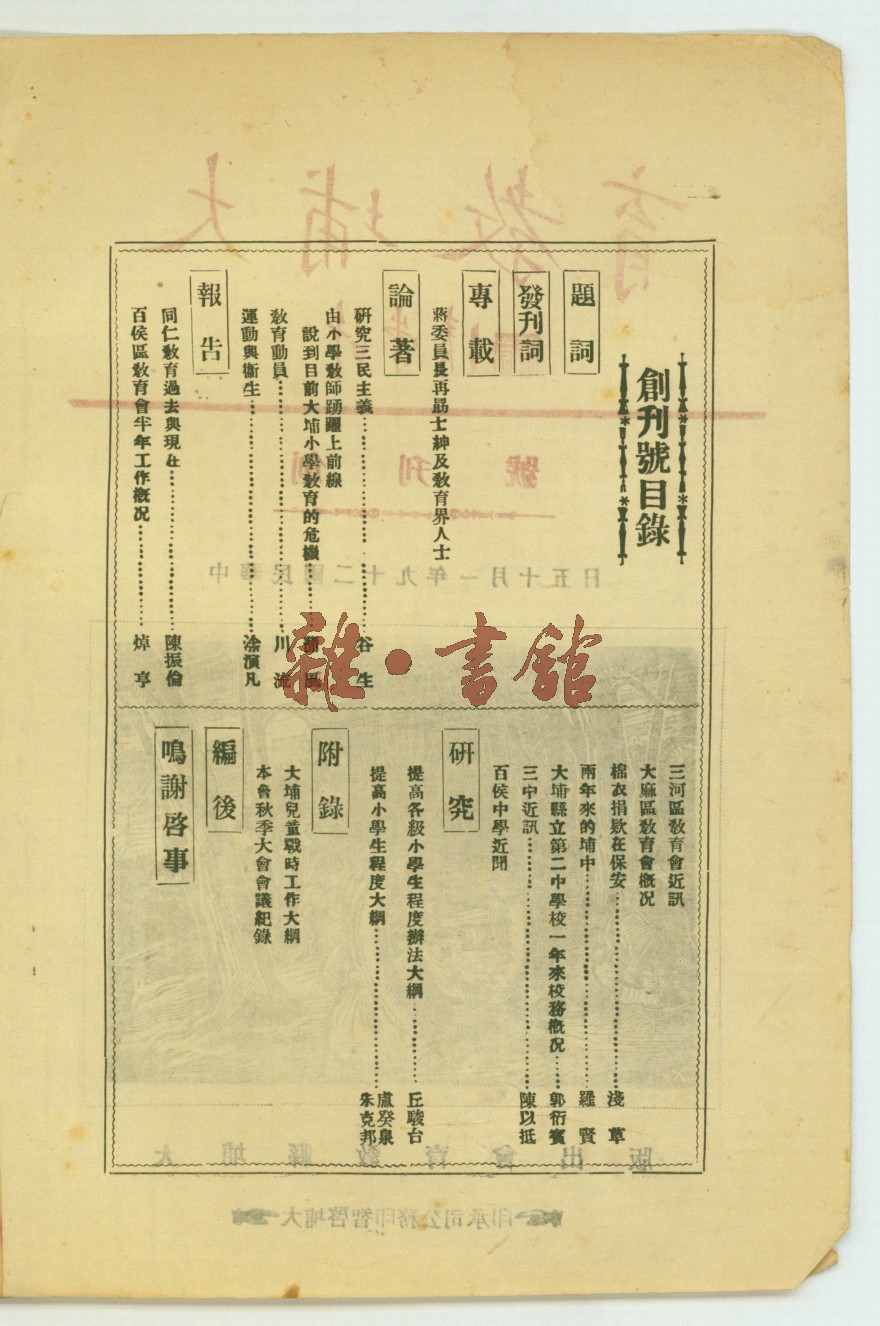 創刊號目錄
題詞
發刊詞
專載
蔣委員長再勗士紳及教育界人士
論著
研究三民主義……谷生
由小學教師踴躍上前線
說到目前大埔小學教育的危機……
教育動員……川流
運動與衞生……涂演凡
報告
同仁教育過去與現在……陳振倫
百侯區教育會半年工作概况……焯亨
三河區教育會近訊
大麻區教育會概况
棉衣捐欵在保安……淺草
兩年來的埔中……羅賢
大埔縣立第二中學校一年來校務概况……郭衍賓
三中近訊……陳以抵
百侯中學近聞
研究
提高各級小學生程度辦法大綱……丘駿台
提高小學生程度大綱……盧癸泉 朱克邦
附錄
大埔兒童戰時工作大綱
本會秋季大會會議紀錄
編後
鳴謝啓事
雜·書館
大埔教育
創刊號
中華民國二十九年一月十五日
大埔縣教育會出版
大埔啓智印務公司承印